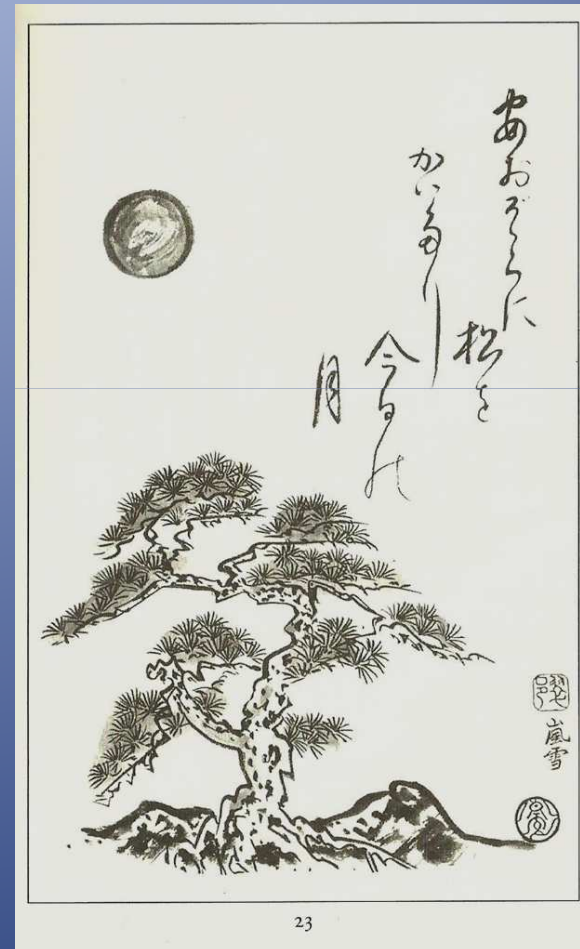 あおぞらに
松を
かいたり
今日の
月
嵐雪
23